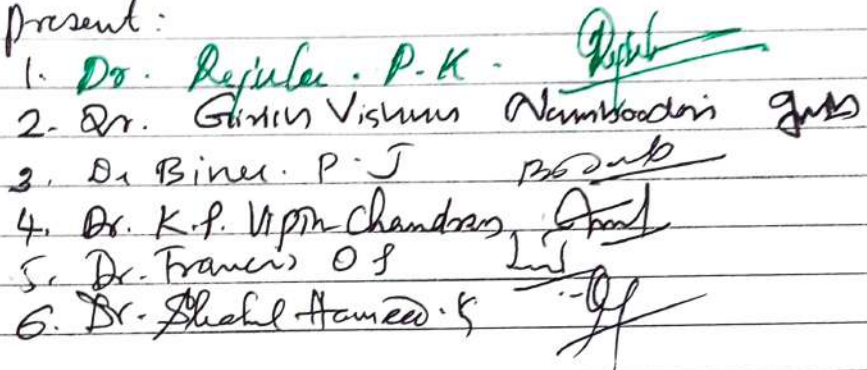 Present:
1. Dr. Rejula. P.K.
2. Dr. Girish Vishnu Namboodiri
3. Dr Binu. P.J
4. Dr. K.P. Vipin Chandran
5. Dr. Francis O S
6. Dr. Shahul Hameed. K